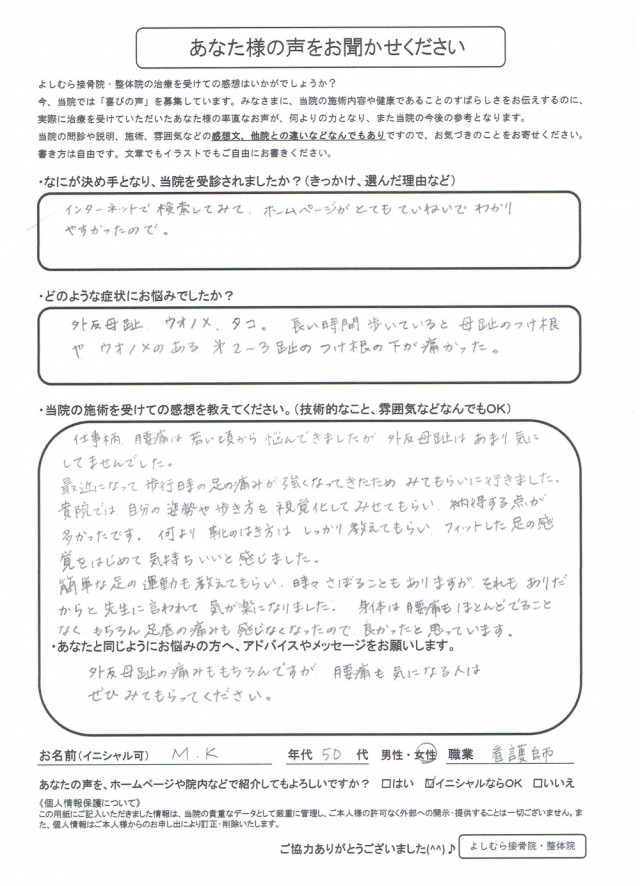 あなた様の声をお聞かせください
よしむら接骨院・整体院の治療を受けての感想はいかがでしょうか？
今、当院では「喜びの声」を募集しています。みなさまに、当院の施術内容や健康であることのすばらしさをお伝えするのに、
実際に治療を受けていただいたあなた様の率直なお声が、何よりの力となり、また当院の今後の参考となります。
当院の問診や説明、施術、雰囲気などの感想文、他院との違いなどなんでもありですので、お気づきのことをお寄せください。
書き方は自由です。文章でもイラストでもご自由にお書きください。
・なにが決め手となり、当院を受診されましたか？（きっかけ、選んだ理由など）
インターネットで検索してみて、ホームページがとてもていねいでわかり
やすかったので。
・どのような症状にお悩みでしたか？
外反母趾、ウオノメ、タコ。長い時間歩いていると母趾のつけ根
や ウオノメのある 第2～3趾のつけ根の下が痛かった。
・当院の施術を受けての感想を教えてください。（技術的なこと、雰囲気などなんでもOK）
仕事柄、腰痛は若い頃から悩んできましたが 外反母趾はあまり気に
してませんでした。
最近になって歩行時の足の痛みが強くなってきたため みてもらいに行きました。
貴院では、自分の姿勢や歩き方を視覚化してみせてもらい、納得する点が
多かったです。何より 靴のはき方は しっかり教えてもらい、フィットした足の感
覚をはじめて気持ちいいと感じました。
簡単な足の運動も教えてもらい、時々さぼることもありますが、それもありだ
からと先生に言われて 気が楽になりました。身体は腰痛もほとんどでること
なく もちろん 足底の痛みも感じなくなったので 良かったと思っています。
・あなたと同じようにお悩みの方へ、アドバイスやメッセージをお願いします。
外反母趾の痛みももちろんですが、腰痛も気になる人は
ぜひ みてもらってください。
お名前（イニシャル可） M.K 年代 50 代 男性・女性 職業 看護師
あなたの声を、ホームページや院内などで紹介してもよろしいですか？ □はい ☑イニシャルならOK □いいえ
《個人情報保護について》
この用紙にご記入いただきました情報は、当院の貴重なデータとして厳重に管理し、ご本人様の許可なく外部への開示・提供することは一切ございません。ま
た、個人情報はご本人様からのお申し出により訂正・削除いたします。
ご協力ありがとうございました(^^)♪ よしむら接骨院・整体院